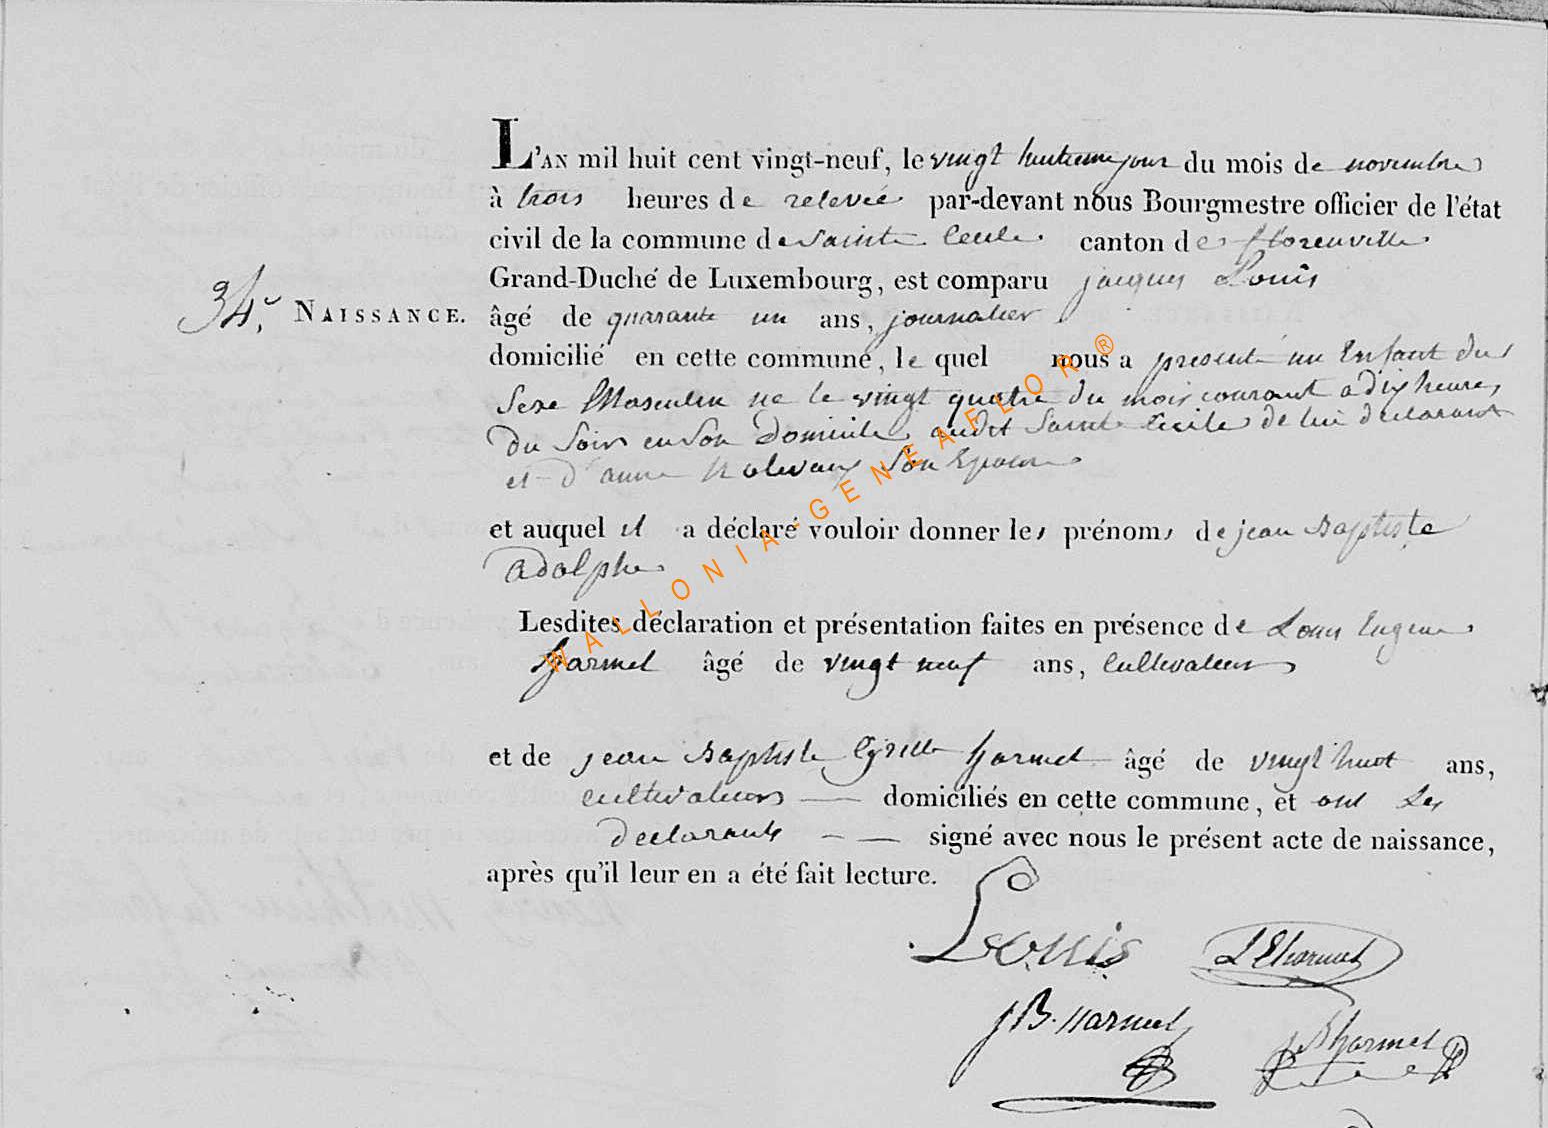 L'AN mil huit cent vingt-neuf, le vingt huitieme jour du mois de novembre
à trois heures de relevée par-devant nous Bourgmestre officier de l'état
civil de la commune de Sainte Cecile canton de florenville
Grand-Duché de Luxembourg, est comparu jacques Louis
34e NAISSANCE. âgé de quarante un ans, journalier
domicilié en cette commune, le quel nous a presenté un Enfant du
Sexe Masculin né le vingt quatre du mois courant a dix heures
du Soir en Son Domicile audit Sainte Cecile de lui declarant
et d'anne Son Epouse
et auquel il a déclaré vouloir donner les prénoms de jean Baptiste
adolphe
Lesdites déclaration et présentation faites en présence de Louis Eugene
harmel âgé de vingt neuf ans, Cultivateur
et de jean Baptiste Cyrille harmel âgé de vingt huit ans,
cultivateurs — domiciliés en cette commune, et ont Les
declarants — — signé avec nous le présent acte de naissance,
après qu'il leur en a été fait lecture.
Louis LEharmel
JB. harmel JBharmel
WALLONIA-GENEAFLOR®